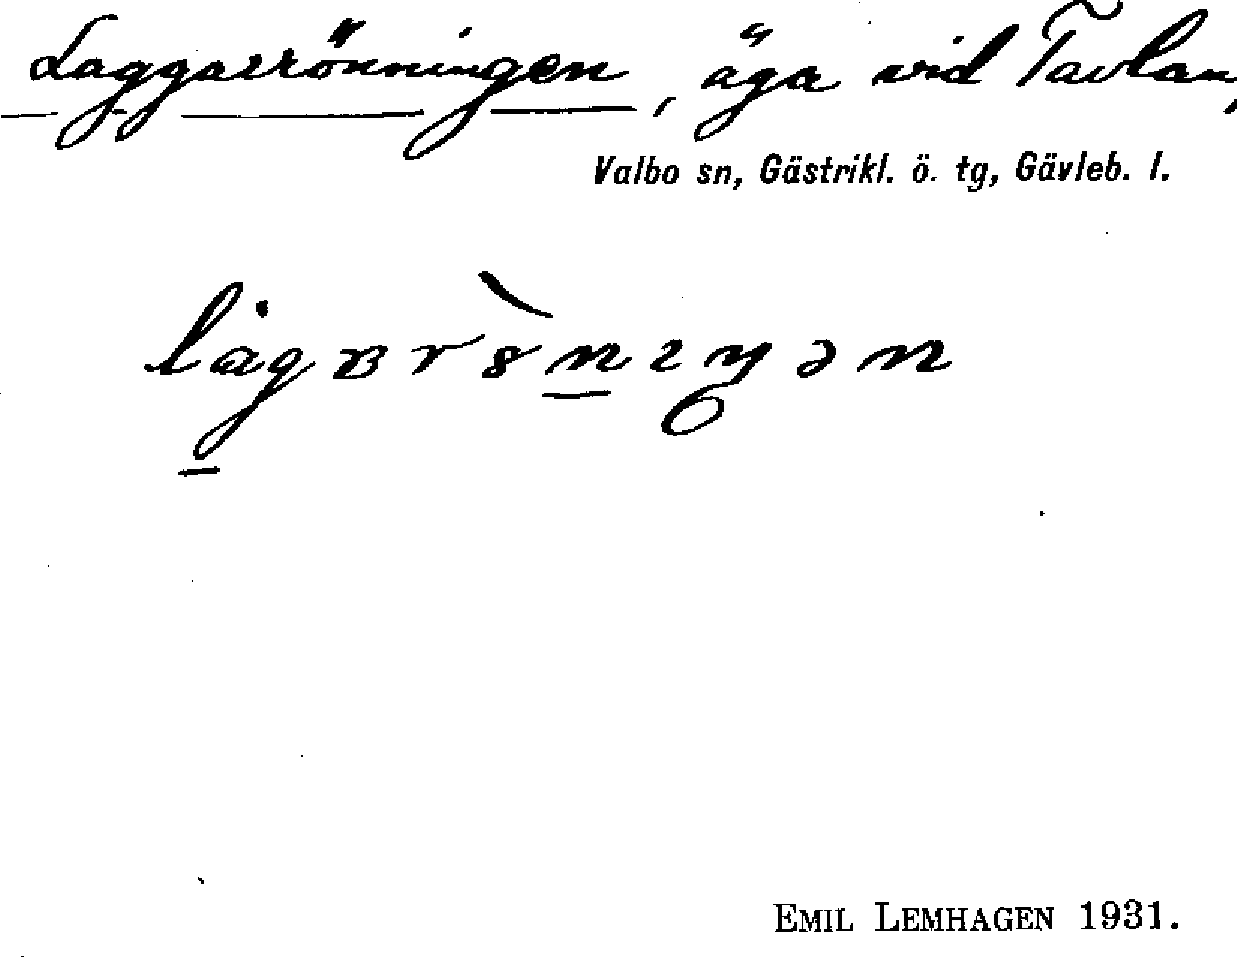 Laggarrönningen, äga vid Tavlan,
Valbo sn, Gästrikl. ö. tg, Gävleb. l.
EMIL LEMHAGEN 1931.